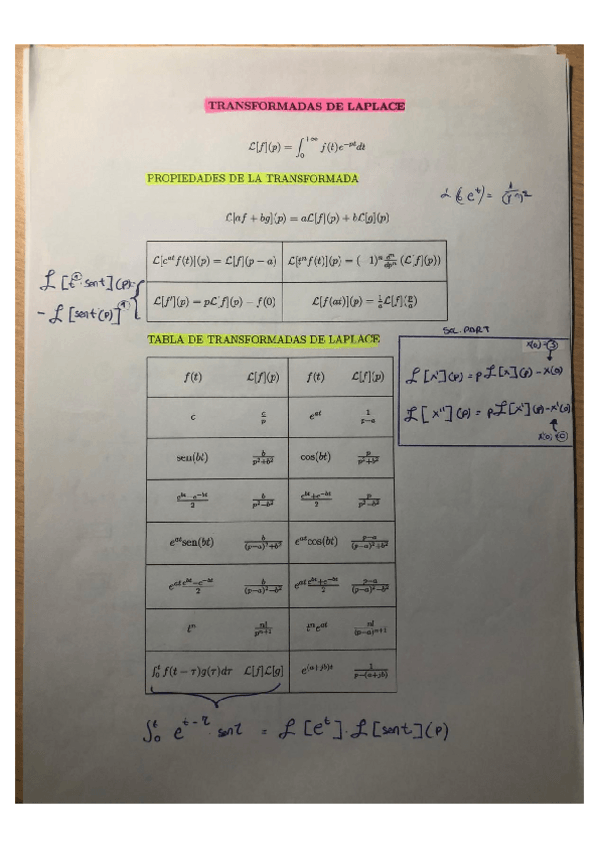 TRANSFORMADAS DE LAPLACE
ℒ[f](p) = ∫₀^{+∞} f(t)e^{-pt}dt
PROPIEDADES DE LA TRANSFORMADA
ℒ[af + bg](p) = aℒ[f](p) + bℒ[g](p)
ℒ[e^{at} f(t)](p) = ℒ[f](p − a) ℒ[tⁿ f(t)](p) = (−1)ⁿ dⁿ/dpⁿ (ℒ[f](p))
ℒ[t sent](p) =
− ℒ[sent(p)]
ℒ[f'](p) = pℒ[f](p) − f(0) ℒ[f(at)](p) = 1/a ℒ[f](p/a)
TABLA DE TRANSFORMADAS DE LAPLACE
SOL. PART
x(0) = 3
ℒ[x'](p) = pℒ[x](p) − x(0)
ℒ[x''](p) = pℒ[x'](p) − x'(0)
x'(0) = 0
f(t) ℒ[f](p) f(t) ℒ[f](p)
c c/p e^{at} 1/(p−a)
sen(bt) b/(p²+b²) cos(bt) p/(p²+b²)
(e^{bt}−e^{−bt})/2 b/(p²−b²) (e^{bt}+e^{−bt})/2 p/(p²−b²)
e^{at}sen(bt) b/((p−a)²+b²) e^{at}cos(bt) (p−a)/((p−a)²+b²)
e^{at} (e^{bt}−e^{−bt})/2 b/((p−a)²−b²) e^{at} (e^{bt}+e^{−bt})/2 (p−a)/((p−a)²−b²)
tⁿ n!/p^{n+1} tⁿe^{at} n!/(p−a)^{n+1}
∫₀ᵗ f(t − τ)g(τ)dτ ℒ[f]ℒ[g] e^{(a+jb)t} 1/(p−(a+jb))
∫₀ᵗ e^{t−τ} · senτ = ℒ[eᵗ] · ℒ[sent](p)